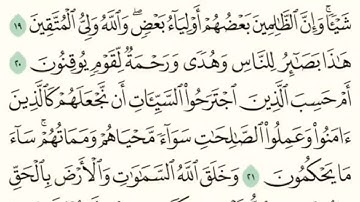 شَيْـًٔا ۚ وَإِنَّ ٱلظَّـٰلِمِينَ بَعْضُهُمْ أَوْلِيَآءُ بَعْضٍ ۖ وَٱللَّهُ وَلِىُّ ٱلْمُتَّقِينَ ١٩
هَـٰذَا بَصَـٰٓئِرُ لِلنَّاسِ وَهُدًى وَرَحْمَةٌ لِّقَوْمٍ يُوقِنُونَ ٢٠
أَمْ حَسِبَ ٱلَّذِينَ ٱجْتَرَحُوا۟ ٱلسَّيِّـَٔاتِ أَن نَّجْعَلَهُمْ كَٱلَّذِينَ
ءَامَنُوا۟ وَعَمِلُوا۟ ٱلصَّـٰلِحَـٰتِ سَوَآءً مَّحْيَاهُمْ وَمَمَاتُهُمْ ۚ سَآءَ
مَا يَحْكُمُونَ ٢١ وَخَلَقَ ٱللَّهُ ٱلسَّمَـٰوَٰتِ وَٱلْأَرْضَ بِٱلْحَقِّ